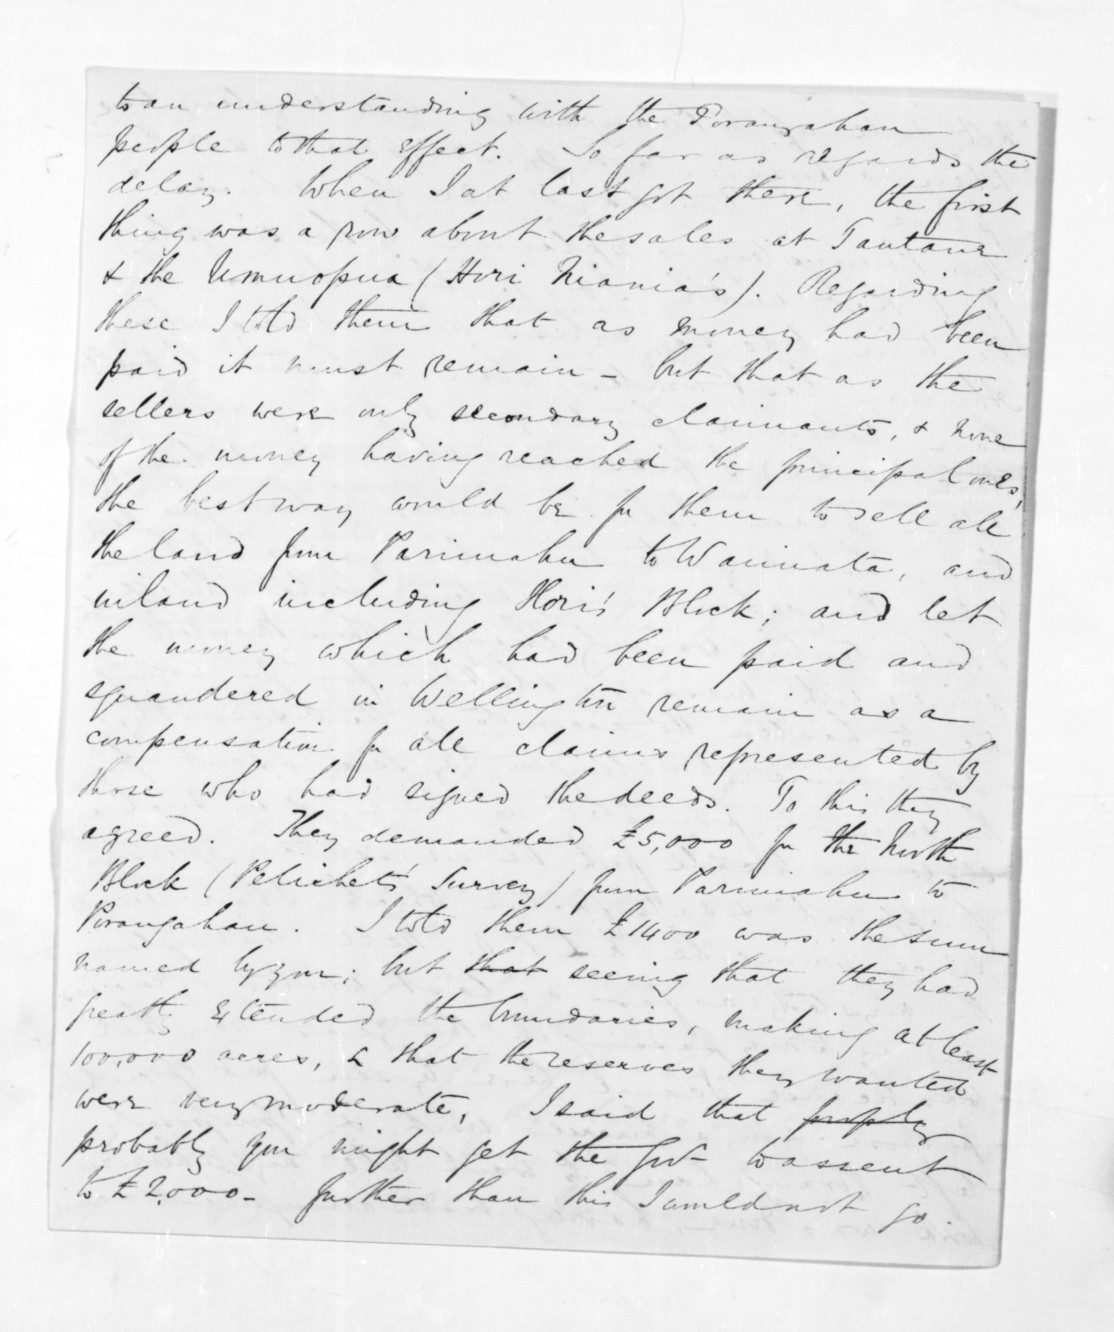 to an understanding with the Porangahau
people to that effect. So far as regards the
delay. When I at last got there, the first
thing was a row about the sales at Tautane
& the Umuopua (Hori Niania's). Regarding
these I told them that as money had been
paid it must remain - but that as the
sellers were only secondary claimants, & none
of the money having reached the principal ones,
the best way would be for them to sell all
the land from Parimahu to Wainuata, and
inland including Hori's Block; and let
the money which had been paid and
squandered in Wellington remain as a
compensation for all claims represented by
those who had signed the deeds. To this they
agreed. They demanded £5,000 for the North
Block (Pelichet's Survey) from Parimahu to
Porangahau. I told them £1400 was the sum
named by you; but that seeing that they had
greatly extended the boundaries, making at least
100,000 acres, & that the reserves they wanted
were very moderate, I said that
probably you might get the Govt to assent
to £2,000 - further than this I could not go.